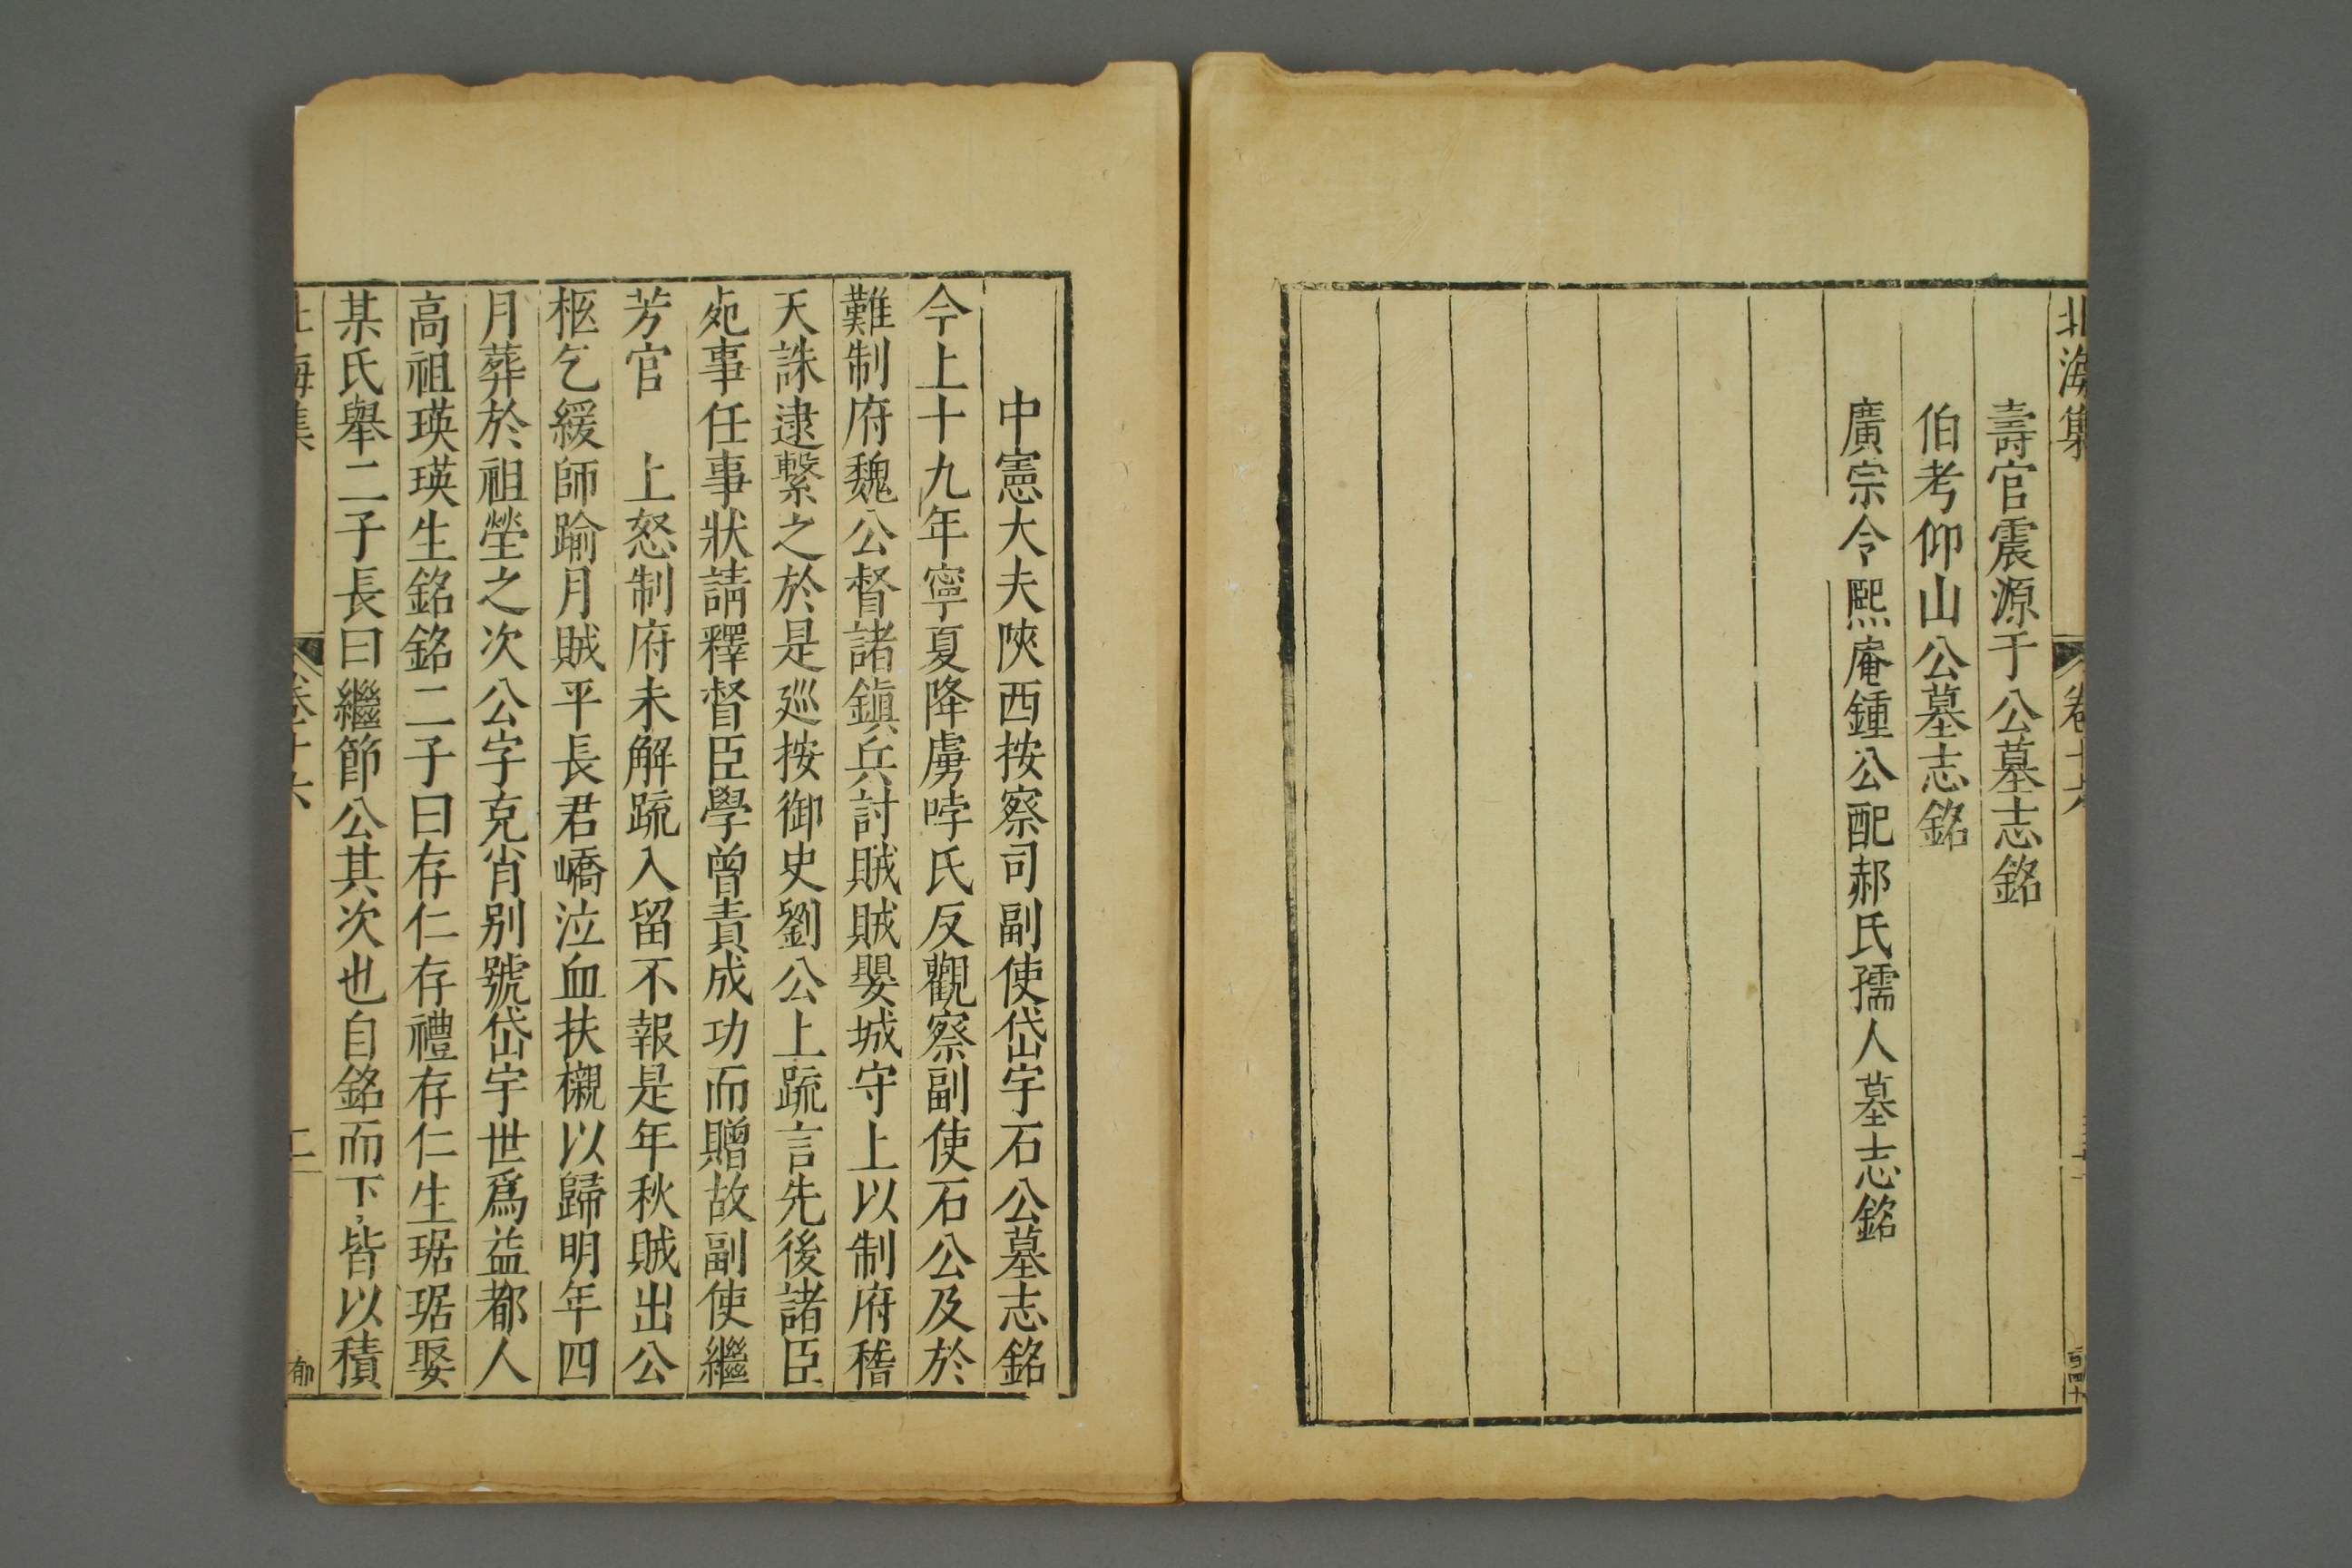 北海集 卷十六
壽官震源于公墓志銘
伯考仰山公墓志銘
廣宗令熙庵鍾公配郝氏孺人墓志銘
中憲大夫陝西按察司副使岱宇石公墓志銘
今上十九年寧夏降虜哱氏反觀察副使石公及於
難制府魏公督諸鎮兵討賊賊嬰城守上以制府稽
天誅逮繫之於是巡按御史劉公上疏言先後諸臣
死事任事狀請釋督臣學曾責成功而贈故副使繼
芳官 上怒制府未解疏入留不報是年秋賊出公
柩乞緩師踰月賊平長君嶠泣血扶櫬以歸明年四
月葬於祖塋之次公字克肖别號岱宇世爲益都人
高祖瑛瑛生銘銘二子曰存仁存禮存仁生琚琚娶
某氏舉二子長曰繼節公其次也自銘而下皆以積
北海集 卷十六 二 郁